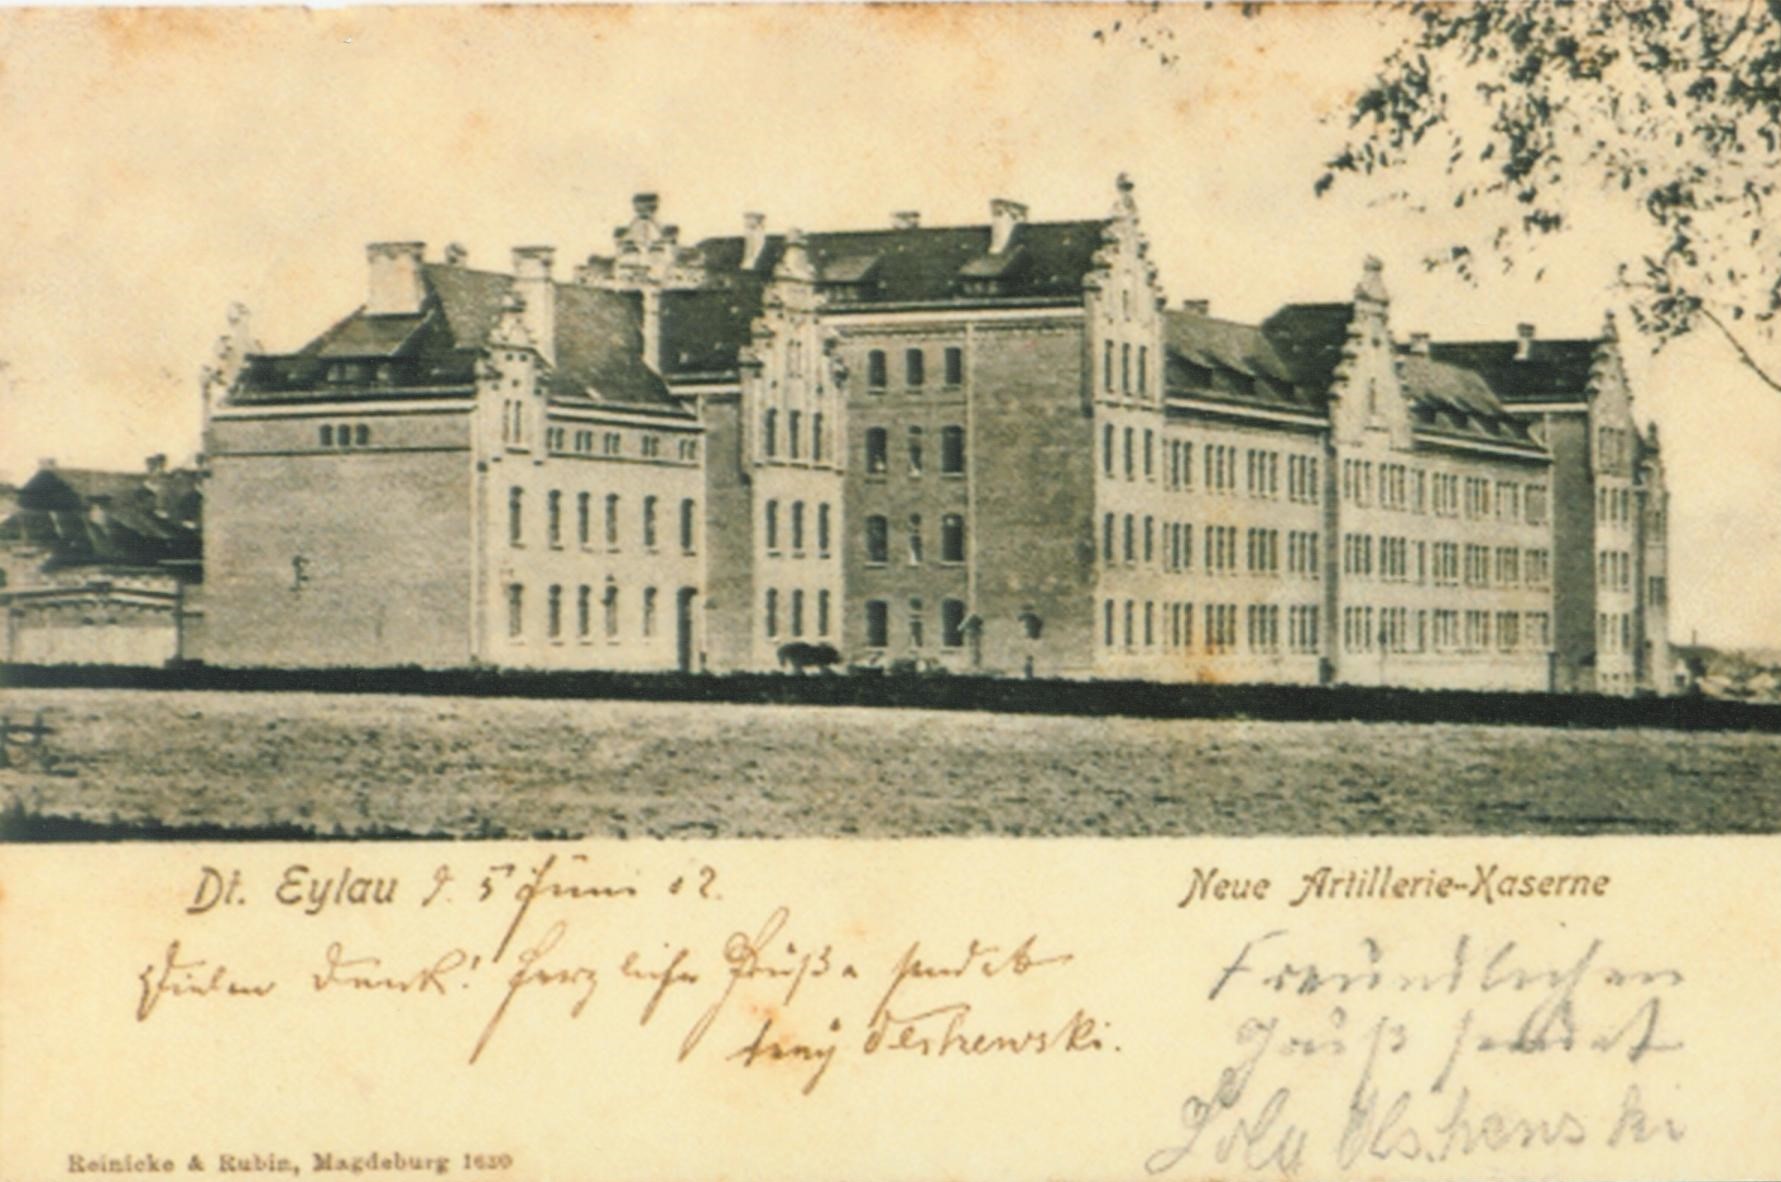 Dt. Eylau d. 5 Juni 02.
Neue Artillerie-Kaserne
Vielen Dank! Herzliche Grüße sendet
Olschewski.
Freundlichen
Gruß sendet
Lola Olschewski
Reinicke & Rubin, Magdeburg 1630